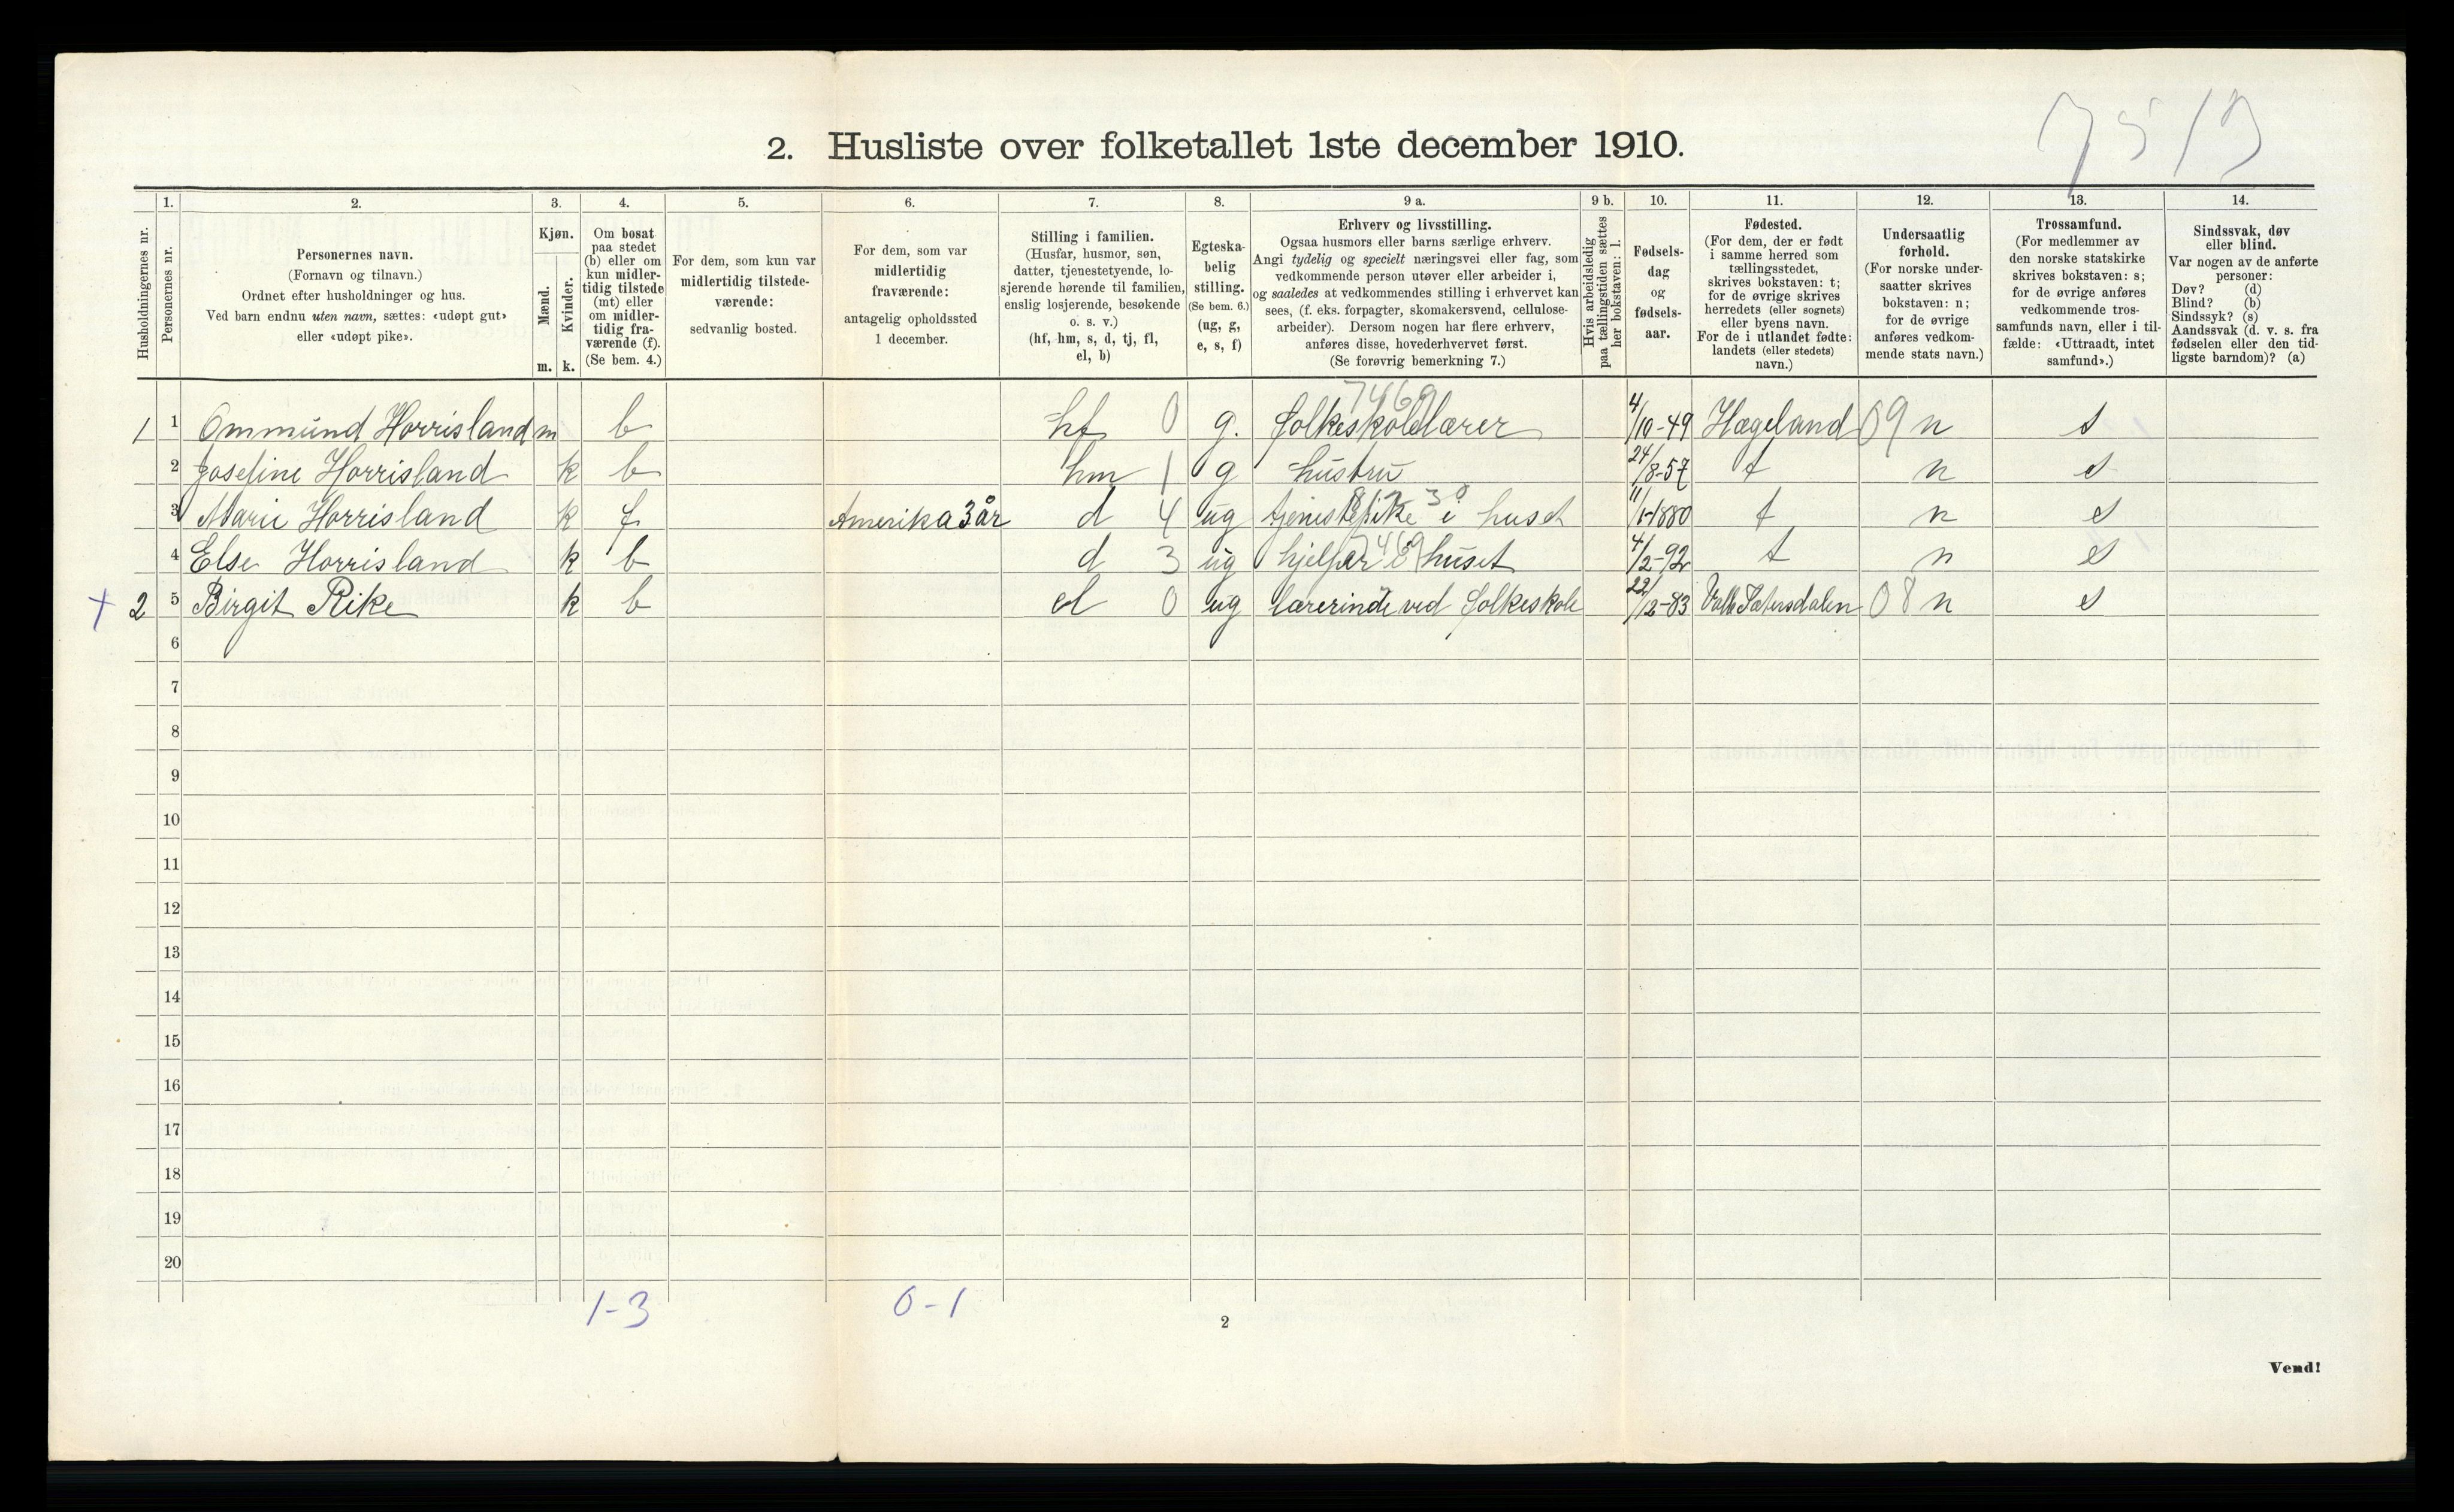 2. Husliste over folketallet 1ste december 1910.
1. 2. 3. 4. 5. 6. 7. 8. 9 a. 9 b. 10. 11. 12. 13. 14.
Husholdningernes nr.
Personernes nr.
Personernes navn.
(Fornavn og tilnavn.)
Ordnet efter husholdninger og hus.
Ved barn endnu uten navn, sættes: «udøpt gut»
eller «udøpt pike».
Kjøn.
Mænd.
Kvinder.
m. k.
Om bosat
paa stedet
(b) eller om
kun midler-
tidig tilstede
(mt) eller
om midler-
tidig fra-
værende (f).
(Se bem. 4.)
For dem, som kun var
midlertidig tilstede-
værende:
sedvanlig bosted.
For dem, som var
midlertidig
fraværende:
antagelig opholdssted
1 december.
Stilling i familien.
(Husfar, husmor, søn,
datter, tjenestetyende, lo-
sjerende hørende til familien,
enslig losjerende, besøkende
o. s. v.)
(hf, hm, s, d, tj, fl,
el, b)
Egteska-
belig
stilling.
(Se bem. 6.)
(ug, g,
e, s, f)
Erhverv og livsstilling.
Ogsaa husmors eller barns særlige erhverv.
Angi tydelig og specielt næringsvei eller fag, som
vedkommende person utøver eller arbeider i,
og saaledes at vedkommendes stilling i erhvervet kan
sees, (f. eks. forpagter, skomakersvend, cellulose-
arbeider). Dersom nogen har flere erhverv,
anføres disse, hovederhvervet først.
(Se forøvrig bemerkning 7.)
Hvis arbeidsledig
paa tællingstiden sættes
her bokstaven: l.
Fødsels-
dag
og
fødsels-
aar.
Fødested.
(For dem, der er født
i samme herred som
tællingsstedet,
skrives bokstaven: t;
for de øvrige skrives
herredets (eller sognets)
eller byens navn.
For de i utlandet fødte:
landets (eller stedets)
navn.)
Undersaatlig
forhold.
(For norske under-
saatter skrives
bokstaven: n;
for de øvrige
anføres vedkom-
mende stats navn.)
Trossamfund.
(For medlemmer av
den norske statskirke
skrives bokstaven: s;
for de øvrige anføres
vedkommende tros-
samfunds navn, eller i til-
fælde: «Uttraadt, intet
samfund».)
Sindssvak, døv
eller blind.
Var nogen av de anførte
personer:
Døv? (d)
Blind? (b)
Sindssyk? (s)
Aandssvak (d. v. s. fra
fødselen eller den tid-
ligste barndom)? (a)
7469
1 1 Ommund Horrisland m b hf 0 g. folkeskolelærer 4/10-49 Hægeland 09 n s
2 Josefine Horrisland k b hm 1 g hustru 24/8-57 t n s
3 Marie Horrisland k f Amerika 3 år d 4 ug tjenestepike i huset 11/1-1880 t n s
4 Else Horrisland k b d 3 ug hjelper i huset 4/2-92 t n s
2 5 Birgit Rike k b el 0 ug lærerinde ved folkeskole 22/12-83 Valle Sætersdalen 08 n s
6
7
8
9
10
11
12
13
14
15
16
17
18
19
20
1-3 0-1
2
Vend!